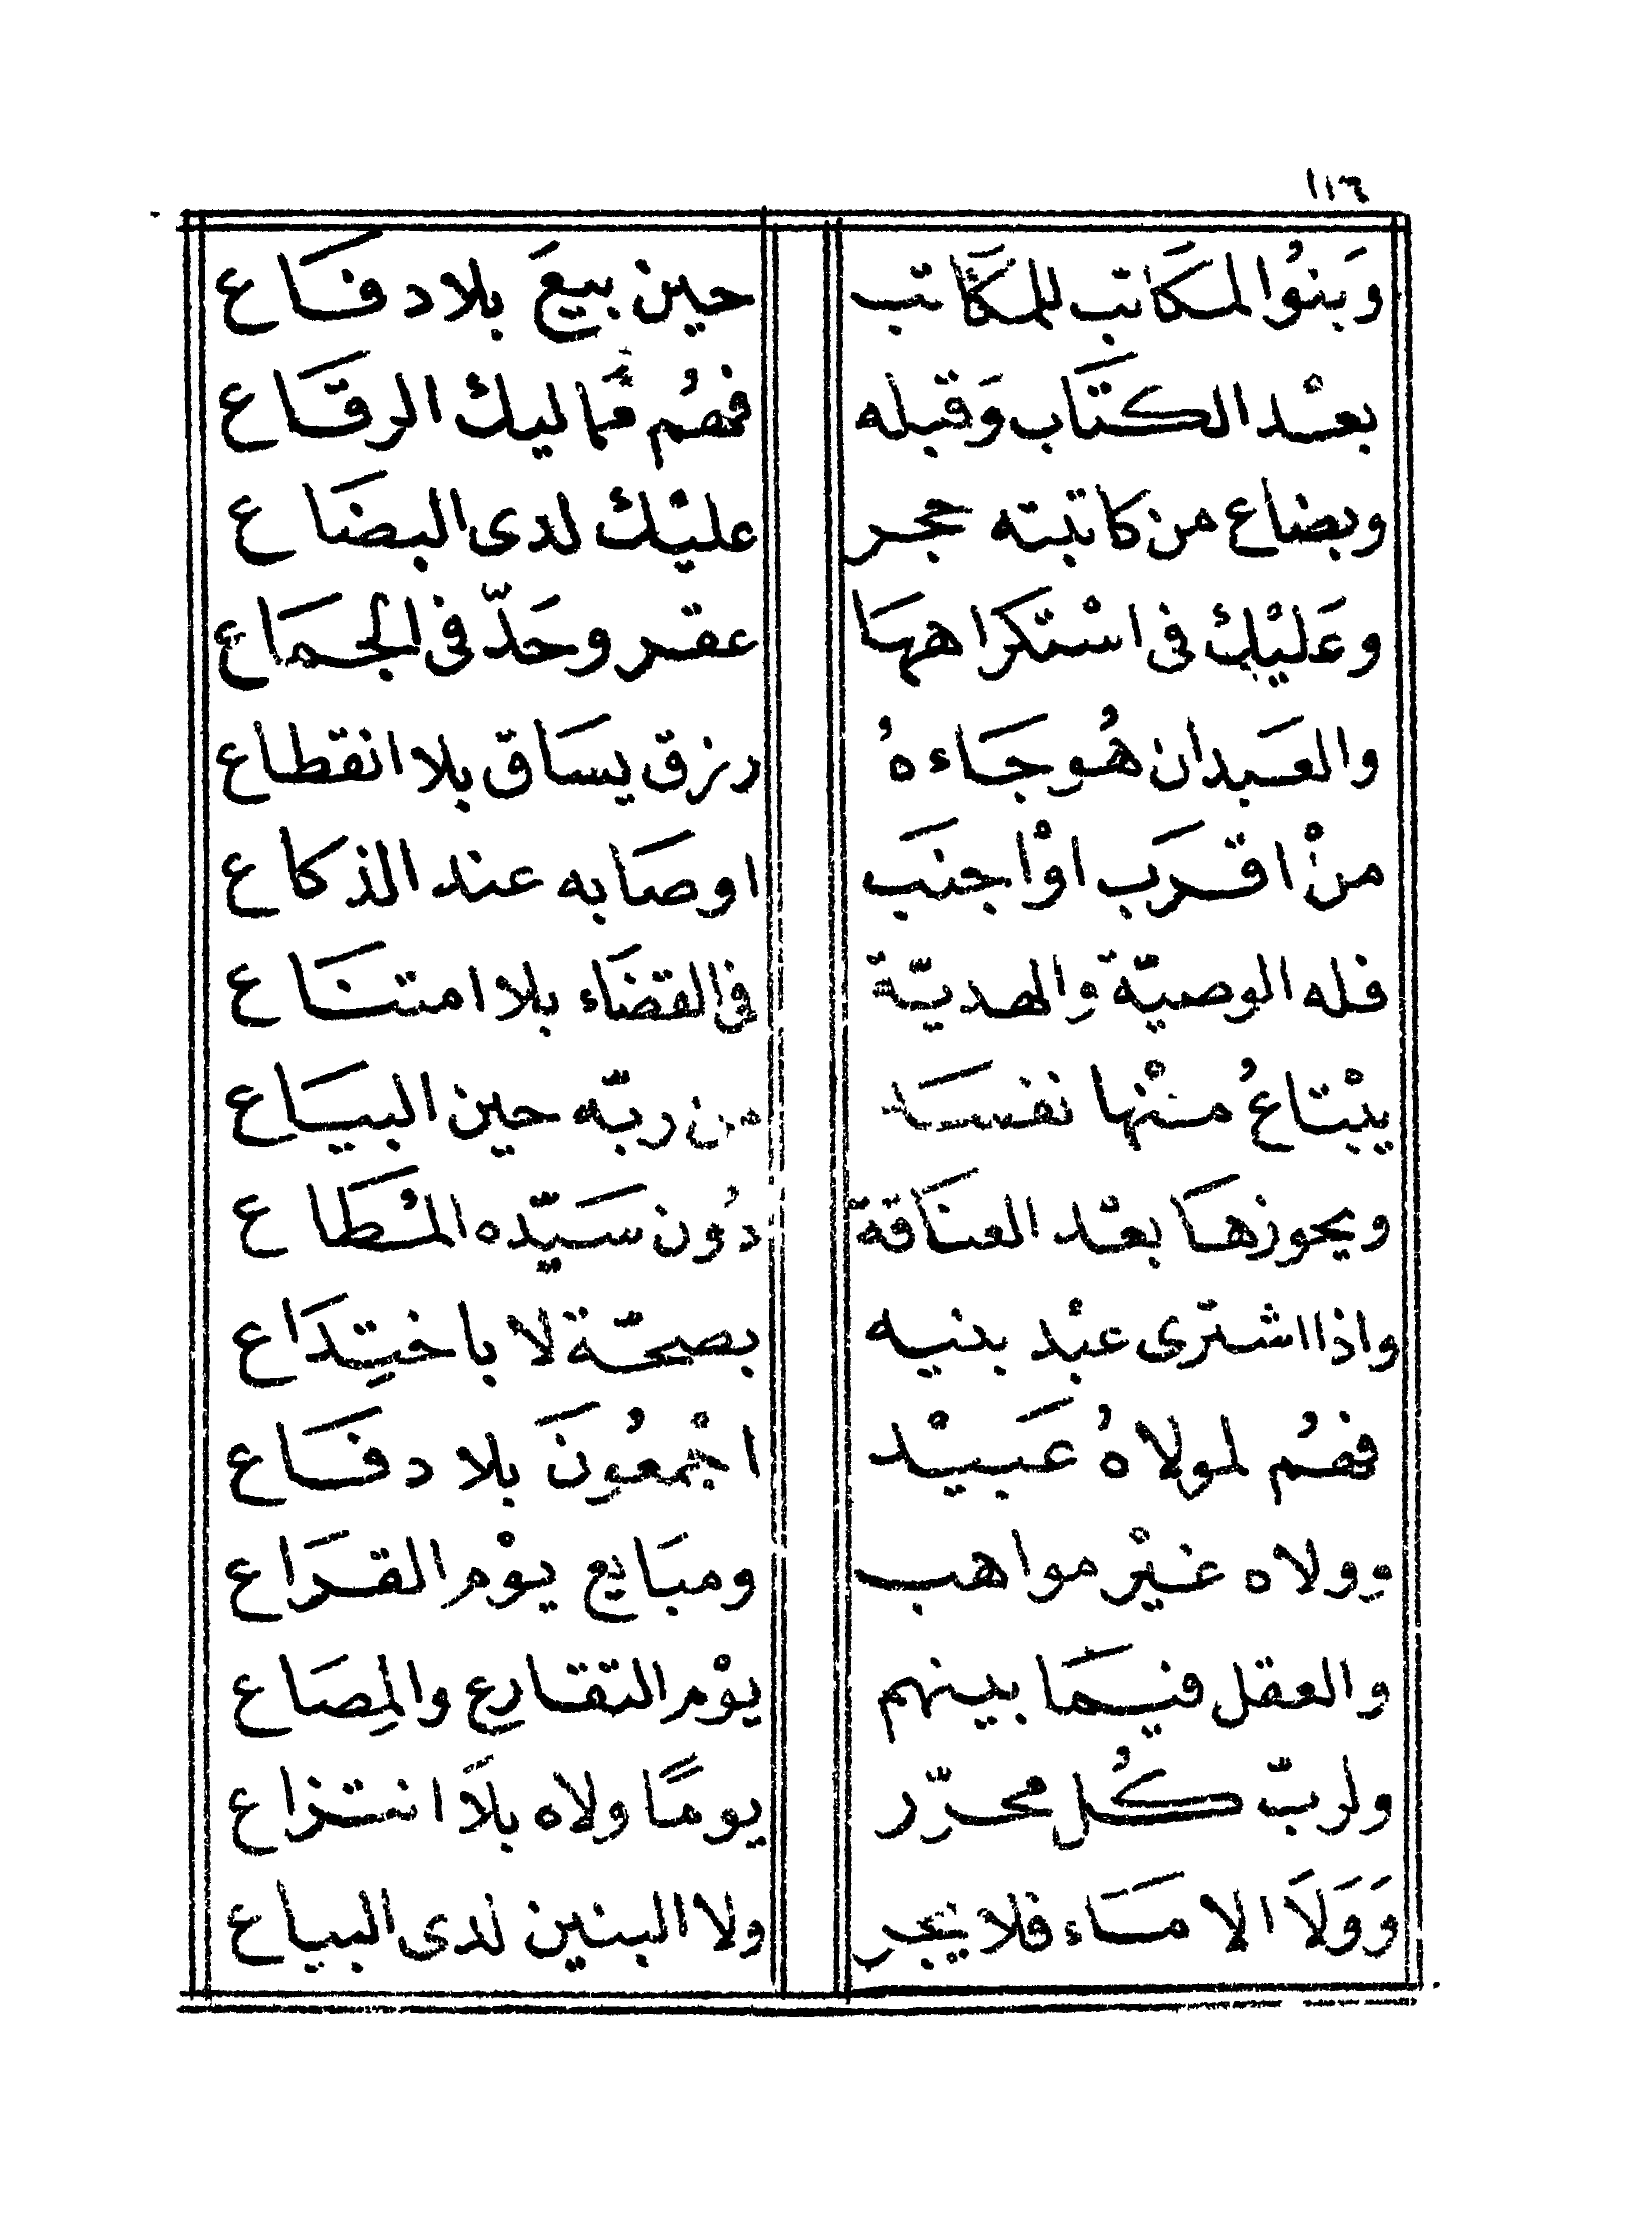 ١١٦
وَبنُوا المكَاتبِ للمكَاتب حين بيعَ بلا دفَاع
بعْد الكتَاب وَقبله فهُم ممَاليك الرقّاع
وبضاع من كاتبته حجر عليْك لدى البضَاع
وعَليْك في اسْتكرَاهها عقر وحَدّ في الجمَاع
والعَبد ان هُو جَاءهُ رزق يسَاق بلا انقطاع
منْ اقرَب اوْ اجنَب او صَابه عند الذكاع
فله الوصيّة والهديّة في القضَاء بلا امتنَاع
يبْتاعُ منْها نفسَه من ربّه حين البيَاع
ويحوزهَا بعْد العتَاقة دُون سَيّده المُطَاع
واذا اشترى عبْد بنيه بصحّة لا باختِدَاع
فهُم لمولاهُ عَبيْد اجْمعُونَ بلا دفَاع
وولاه غيْر مواهب ومبَايع يوْم القرَاع
والعقل فيمَا بينهم يوْم التقارع والمِصَاع
ولربّ كُل محرّر يومًا ولاه بلَا انتزاع
وَوَلَا الامَاء فلا يجر ولا البنين لدى البياع